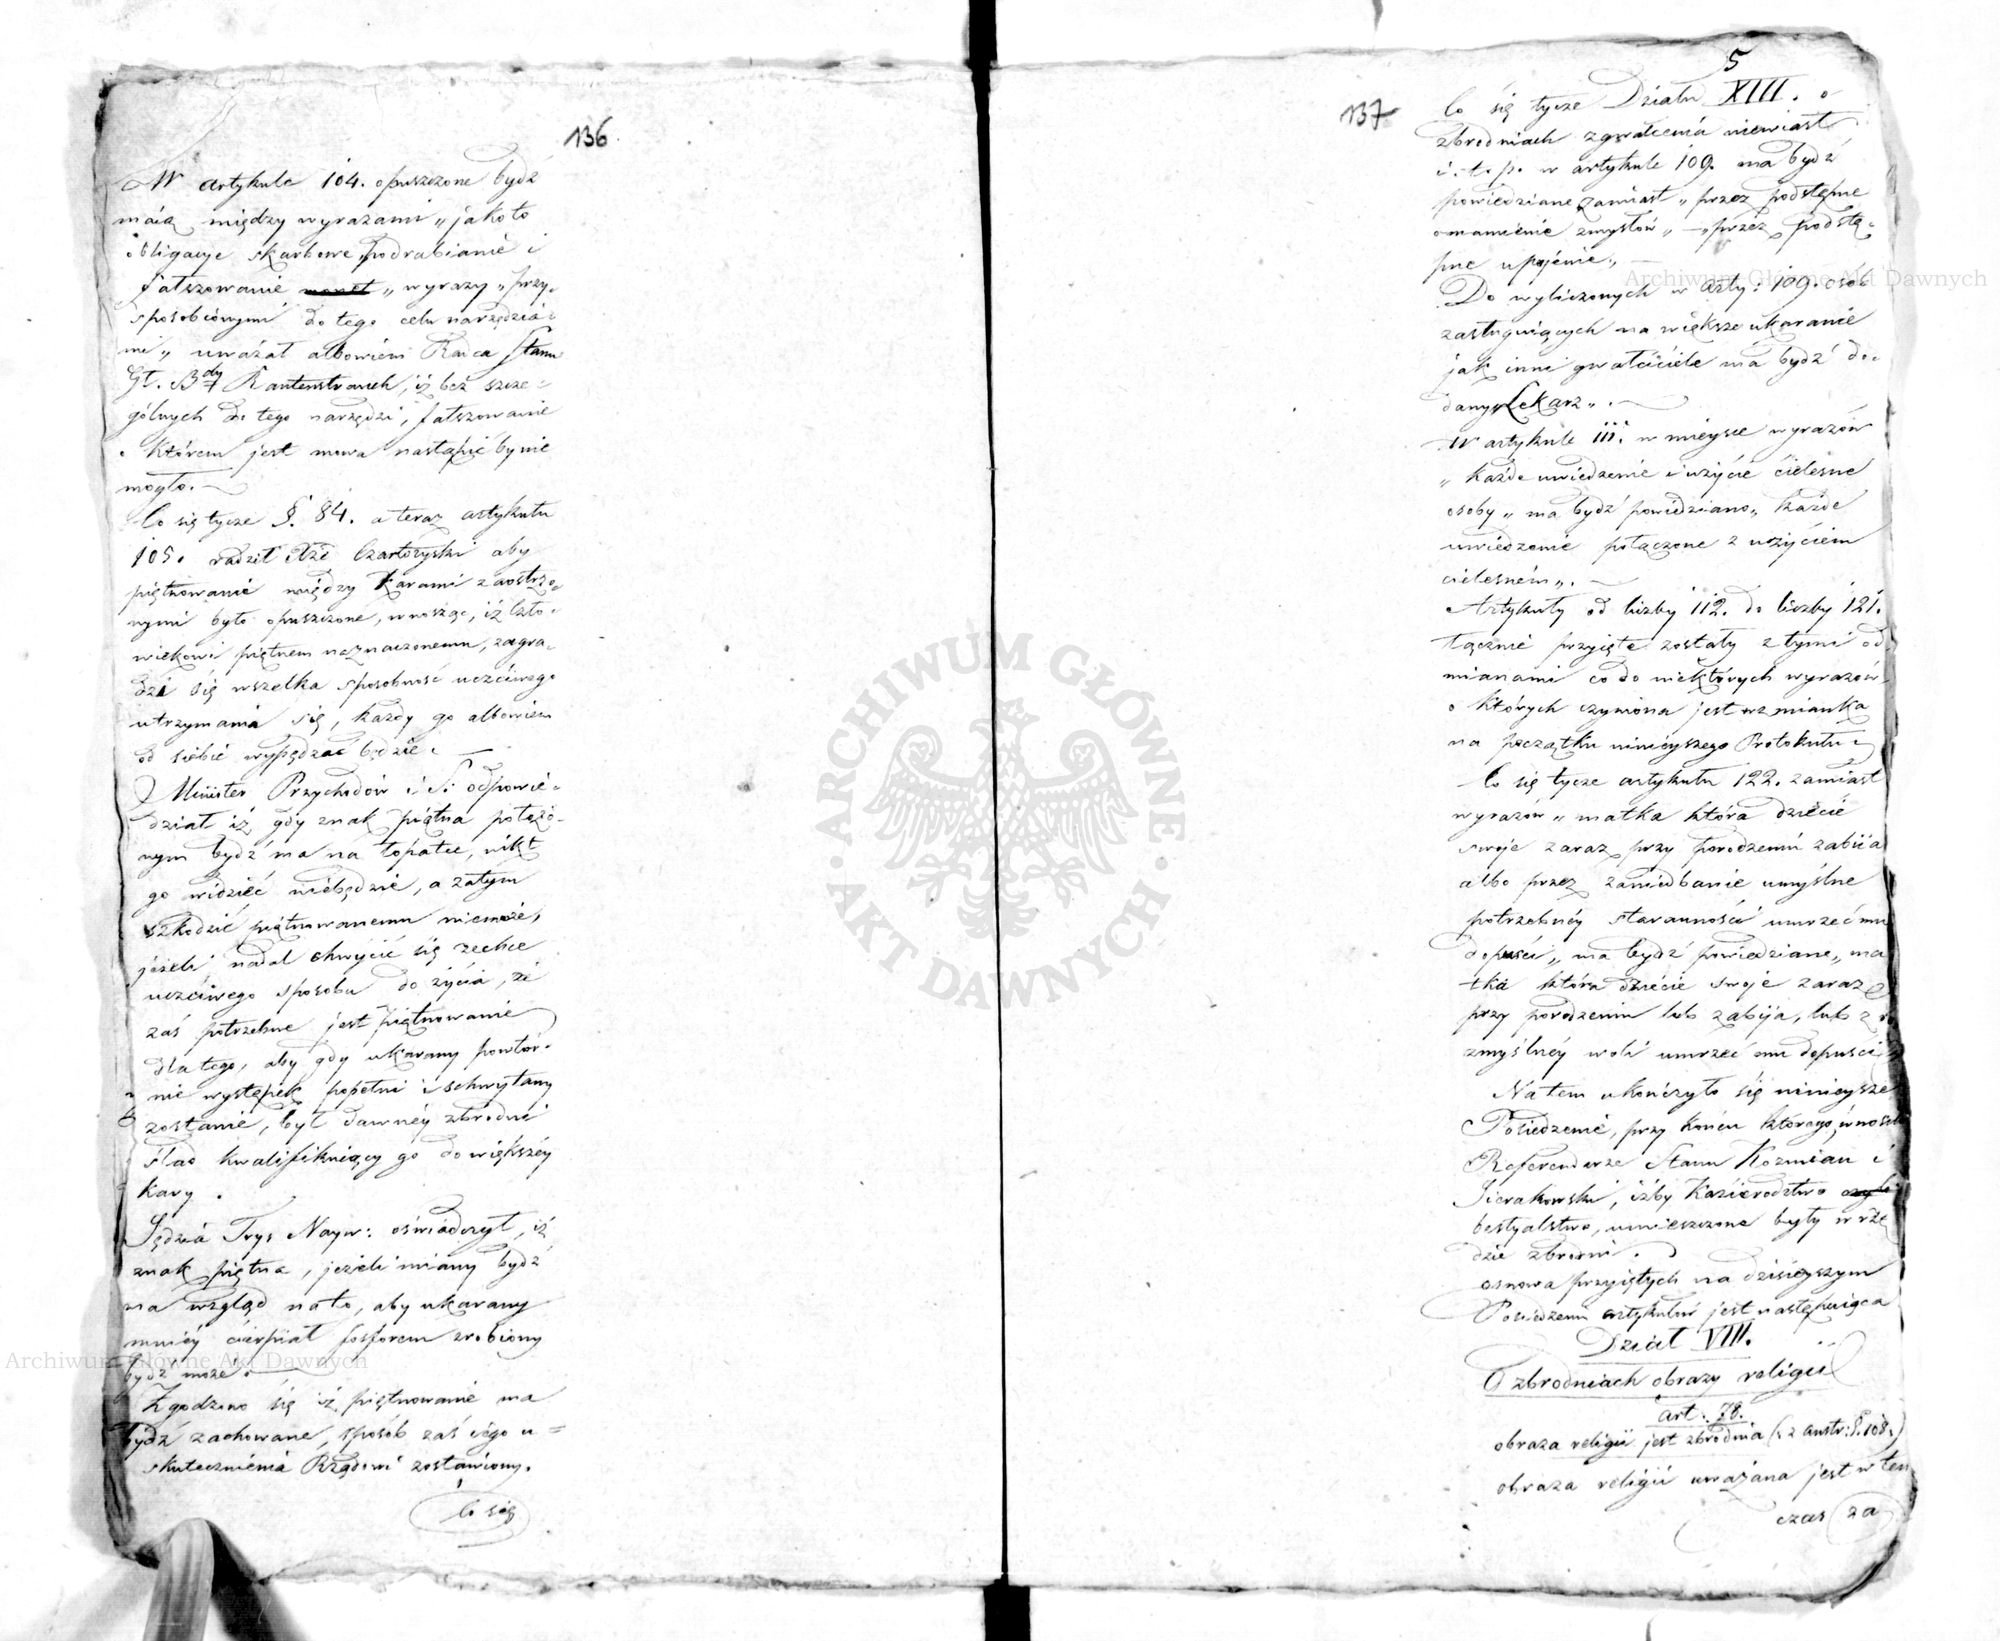 136
W artykule 104. opuszczone bydź
maią między wyrazami „jako to
obligacye skarbowe, podrabianie i
fałszowanie monet „ wyrazy „ przy-
sposobionymi do tego celu narzędzia-
mi „ uważał albowiem Radca Stanu
Gł. Bdy Kautenstrauch, iż bez szcze-
gólnych do tego narzędzi, fałszowanie
o którem jest mowa nastąpić by nie
mogło.
Co się tycze §. 84. a teraz artykułu
105. radził Xże Czartoryski aby
piętnowanie między karami zaostrzo-
nymi było opuszczone, wnosząc, iż czło-
wiekowi piętnem naznaczonemu, zagra-
dzi się wszelka sposobność uczciwego
utrzymania się, każdy go albowiem
od siebie wypędzać będzie.
Minister Przychodów i S. odpowie-
dział iż gdy znak piętna położo-
nym bydź ma na łopatce, nikt
go widzieć niebędzie, a zatym
szkodzić piętnowanemu niemoże,
jeżeli nadal chwycić się zechce
uczciwego sposobu do życia, że
zaś potrzebne jest piętnowanie
dla tego, aby gdy ukarany powtór-
nie występek popełni i schwytany
zostanie, był dawnéy zbrodni
ślad kwalifikuiący go do większéy
kary.
Sędzia Tryb. Nayw: oświadczył, iż
znak piętna, jeżeli miany bydź
ma wzgląd na to, aby ukarany
mniéy cierpiał fosforem zrobiony
bydź może.
Zgodzono się iż piętnowanie ma
bydź zachowane, sposób zaś iego u=
skutecznienia Rządowi zostawiony.
Co się
5
137
Co się tycze Działu XIII. o
zbrodniach zgwałcenia niewiast
i. t. p. w artykule 109. ma bydź
powiedziane zamiast „ przez podstępne
omamienie zmysłów „ — „ przez podstę-
pne upojenie „
Do wyliczonych w arty: 109. osób
zasługuiących na większe ukaranie
jak inni gwałciciele ma bydź do-
dany „ Lekarz „.
W artykule 111. w mieysce wyrazów
„ każde uwiedzenie i użycie cielesne
osoby „ ma bydź powiedziano „ każde
uwiedzenie połączone z użyciem
cielesném „.
Artykuły od liczby 112. do liczby 121.
łącznie przyięte zostały z tymi od
mianami co do niektórych wyrazów
o których czyniona jest wzmianka
na początku ninieyszego Protokułu
Co się tycze artykułu 122. zamiast
wyrazów „ matka która dziecie
swoje zaraz przy porodzeniu zabiia
albo przez zaniedbanie umyślne
potrzebnéy staranności umrzeć mu
dopuści „ ma bydź powiedziane „ ma
tka która dziecie swoje zaraz
przy porodzeniu lub zabija, lub z ro
zmyślnéy woli umrzeć mu dopuści
Na tem ukończyło się ninieysze
Posiedzenie, przy końcu którego, wnosili
Referendarze Stanu Kozmian i
Sierakowski, iżby kazirodztwo
bestyalstwo, umieszczone były w rzę
dzie zbrodni.
osnowa przyiętych na dzisieyszym
Posiedzeniu artykułów jest następuiąca
Dział VIII.
O zbrodniach obrazy religii
art: 78.
obraza religii jest zbrodnia (: z austr: §. 108.)
obraza religii uważana jest w ten
czas za
Archiwum Główne Akt Dawnych
Archiwum Główne Akt Dawnych
ARCHIWUM GŁÓWNE AKT DAWNYCH